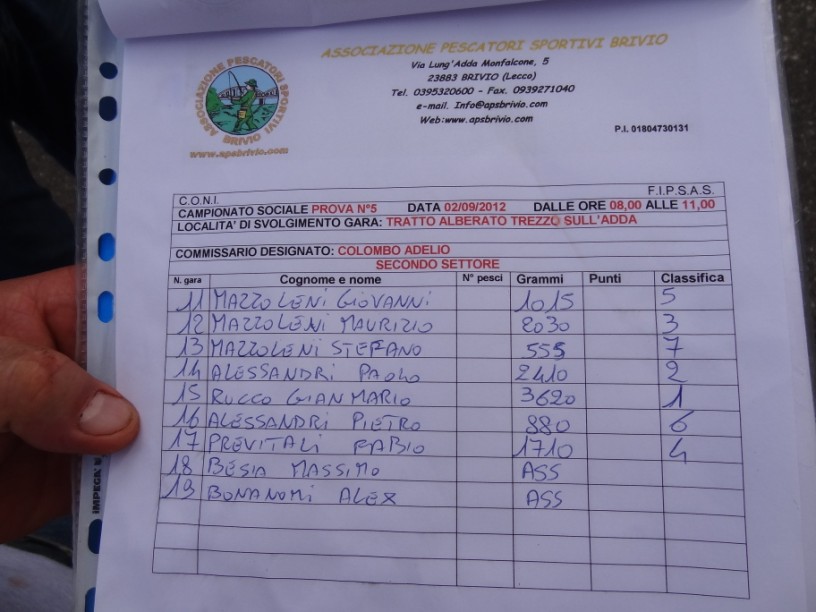 ASSOCIAZIONE PESCATORI SPORTIVI BRIVIO
Via Lung'Adda Monfalcone, 5
23883 BRIVIO (Lecco)
Tel. 0395320600 - Fax. 0939271040
e-mail. Info@apsbrivio.com
Web:www.apsbrivio.com
P.I. 01804730131
ASSOCIAZIONE PESCATORI SPORTIVI BRIVIO
www.apsbrivio.com
C.O.N.I. F.I.P.S.A.S.
CAMPIONATO SOCIALE PROVA N°5 DATA 02/09/2012 DALLE ORE 08,00 ALLE 11,00
LOCALITA' DI SVOLGIMENTO GARA: TRATTO ALBERATO TREZZO SULL'ADDA
COMMISSARIO DESIGNATO: COLOMBO ADELIO
SECONDO SETTORE
N. gara Cognome e nome N° pesci Grammi Punti Classifica
11 MAZZOLENI GIOVANNI 1015 5
12 MAZZOLENI MAURIZIO 2030 3
13 MAZZOLENI STEFANO 555 7
14 ALESSANDRI PAOLO 2410 2
15 RUCCO GIANMARIO 3620 1
16 ALESSANDRI PIETRO 880 6
17 PREVITALI FABIO 1710 4
18 BESIA MASSIMO ASS
19 BONANOMI ALEX ASS